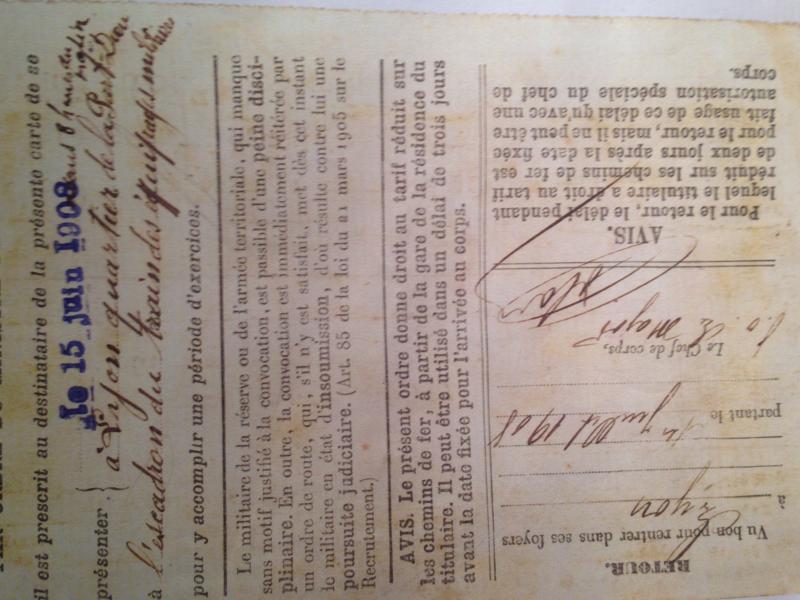 il est prescrit au destinataire de la présente carte de se
le 15 juin 1908 8 heures du matin
présenter { à Lyon quartier de la Part Dieu
à l'escadron du train des équipages militaires
pour y accomplir une période d'exercices.
Le militaire de la réserve ou de l'armée territoriale, qui manque
sans motif justifié à la convocation, est passible d'une peine disci-
plinaire. En outre, la convocation est immédiatement réitérée par
un ordre de route, qui, s'il n'y est satisfait, met dès cet instant
le militaire en état d'insoumission, d'où résulte contre lui une
poursuite judiciaire. (Art. 85 de la loi du 21 mars 1905 sur le
Recrutement.)
AVIS. Le présent ordre donne droit au tarif réduit sur
les chemins de fer, à partir de la gare de la résidence du
titulaire. Il peut être utilisé dans un délai de trois jours
avant la date fixée pour l'arrivée au corps.
RETOUR.
Vu bon pour rentrer dans ses foyers
à Lyon
partant le 1er juillet 1908
Le Chef de corps,
P.O. Le Major
AVIS.
Pour le retour, le délai pendant
lequel le titulaire a droit au tarif
réduit sur les chemins de fer est
de deux jours après la date fixée
pour le retour, mais il ne peut être
fait usage de ce délai qu'avec une
autorisation spéciale du chef de
corps.